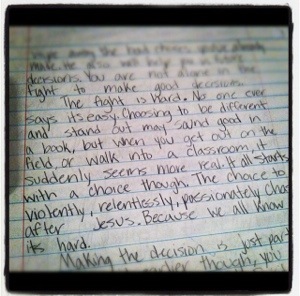 away the bad choices
make. He also will help
decisions. You are not alone in the
fight to make good decisions.
The fight is hard. No one ever
says its easy. Choosing to be different
and stand out may sound good in
a book, but when you get out on the
field, or walk into a classroom, it
suddenly seems more real. It all starts
with a choice though. The choice to
violently, relentlessly, passionately chase
after Jesus. Because we all know
its hard.
Making the decision is just part
earlier though, you